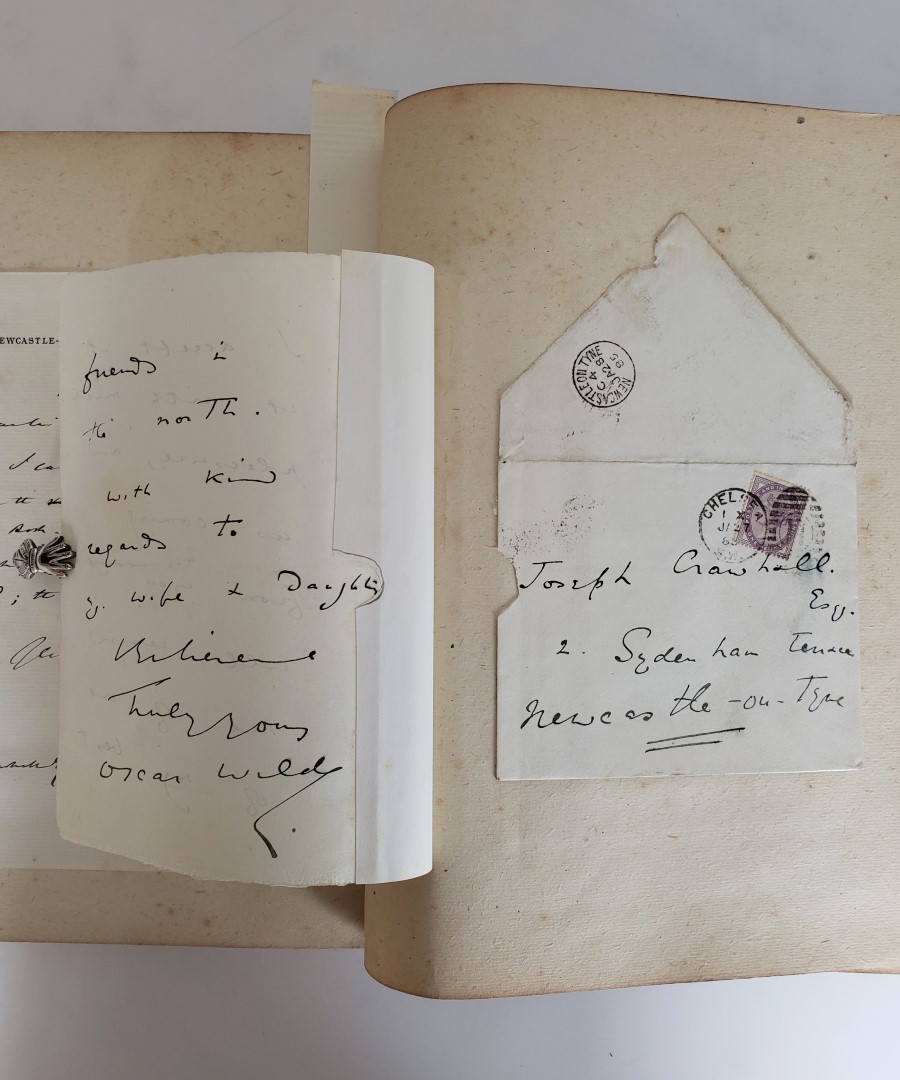 EWCASTLE-
I ca
friends in
the north.
with kind
regards to
yr. wife & Daughter
Believe me
Truly yours
Oscar Wilde
NEWCASTLE ON TYNE
C 4
JA 28
85
CHELSEA
1 X
JA 2
85
S.W.
Joseph Crawhall.
Esq.
2. Sydenham Terrace
Newcastle-on-Tyne